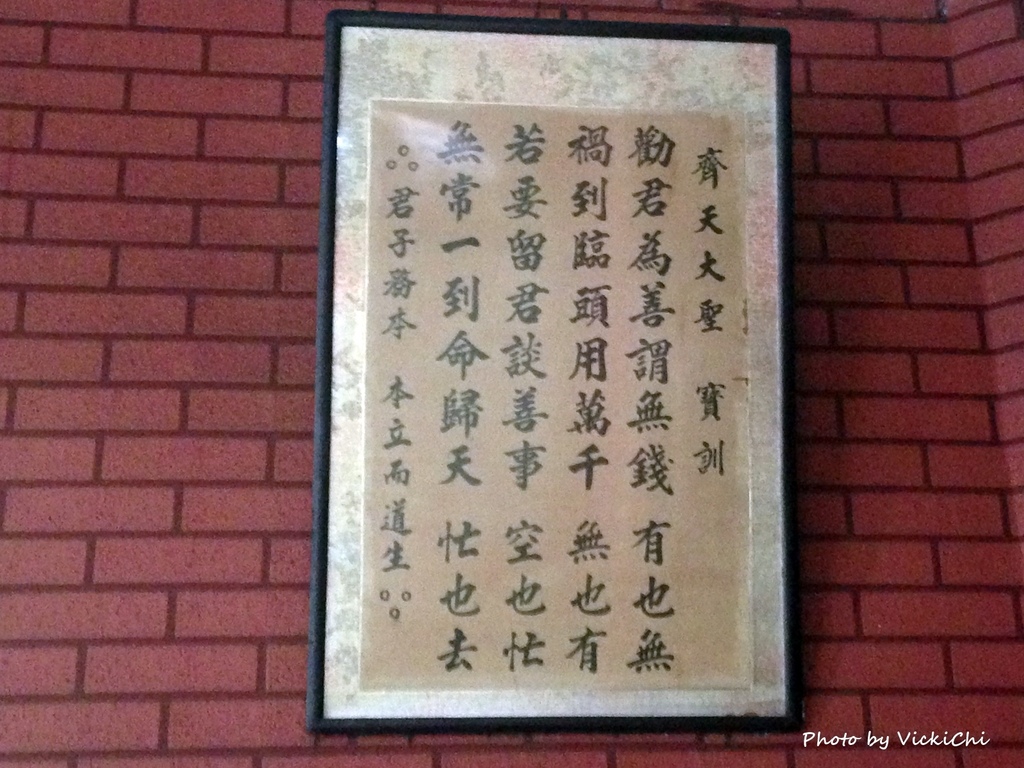 齊天大聖 寶訓
勸君為善謂無錢 有也無
禍到臨頭用萬千 無也有
若要留君談善事 空也忙
無常一到命歸天 忙也去
君子務本 本立而道生
Photo by VickiChi